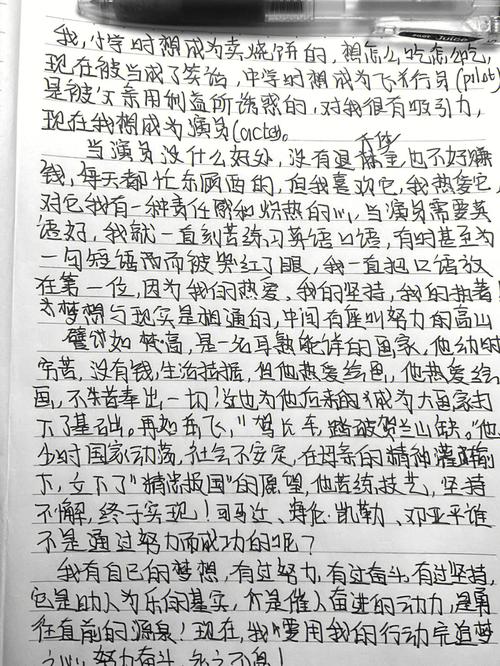 Juice
我,小学时想成为卖烧饼的,想怎么吃怎么吃,
现在被当成了笑话,中学时想成为飞行员(pilot)
是被父亲用利益所诱惑的,对我很有吸引力,
现在我想成为演员(actor)。
当演员没什么好处,没有退休金,也不好赚
钱,每天都忙东顾西的,但我喜欢它,我热爱它,
对它我有一种责任感和灼热的心,当演员需要英
语好,我就一直刻苦练习英语口语,有时甚至为
一句短语而被哭红了眼,我一直把口语放
在第一位,因为我的热爱、我的坚持,我的执着!
梦想与现实是相通的,中间有座叫努力的高山
譬如梵·高,是一名耳熟能详的画家,他幼时
穷苦,没有钱,生活拮据,但他热爱绘画,他热爱绘
画,不惜奉出一切!这也为他后来的成为大画家打
下了基础。再如岳飞,"驾长车,踏破贺兰山缺。"他
小时国家动荡,社会不安定,在母亲的精神灌输
下,立下了"精忠报国"的愿望,他苦练技艺,坚持
不懈,终于实现!司马迁、海伦·凯勒、邓亚平谁
不是通过努力而成功的呢?
我有自己的梦想,有过努力,有过奋斗,有过坚持,
它是助人为乐的基实,亦是催人奋进的动力,是勇
往直前的源泉!现在,我要用我的行动完追梦
之心,努力奋斗,永之不息!